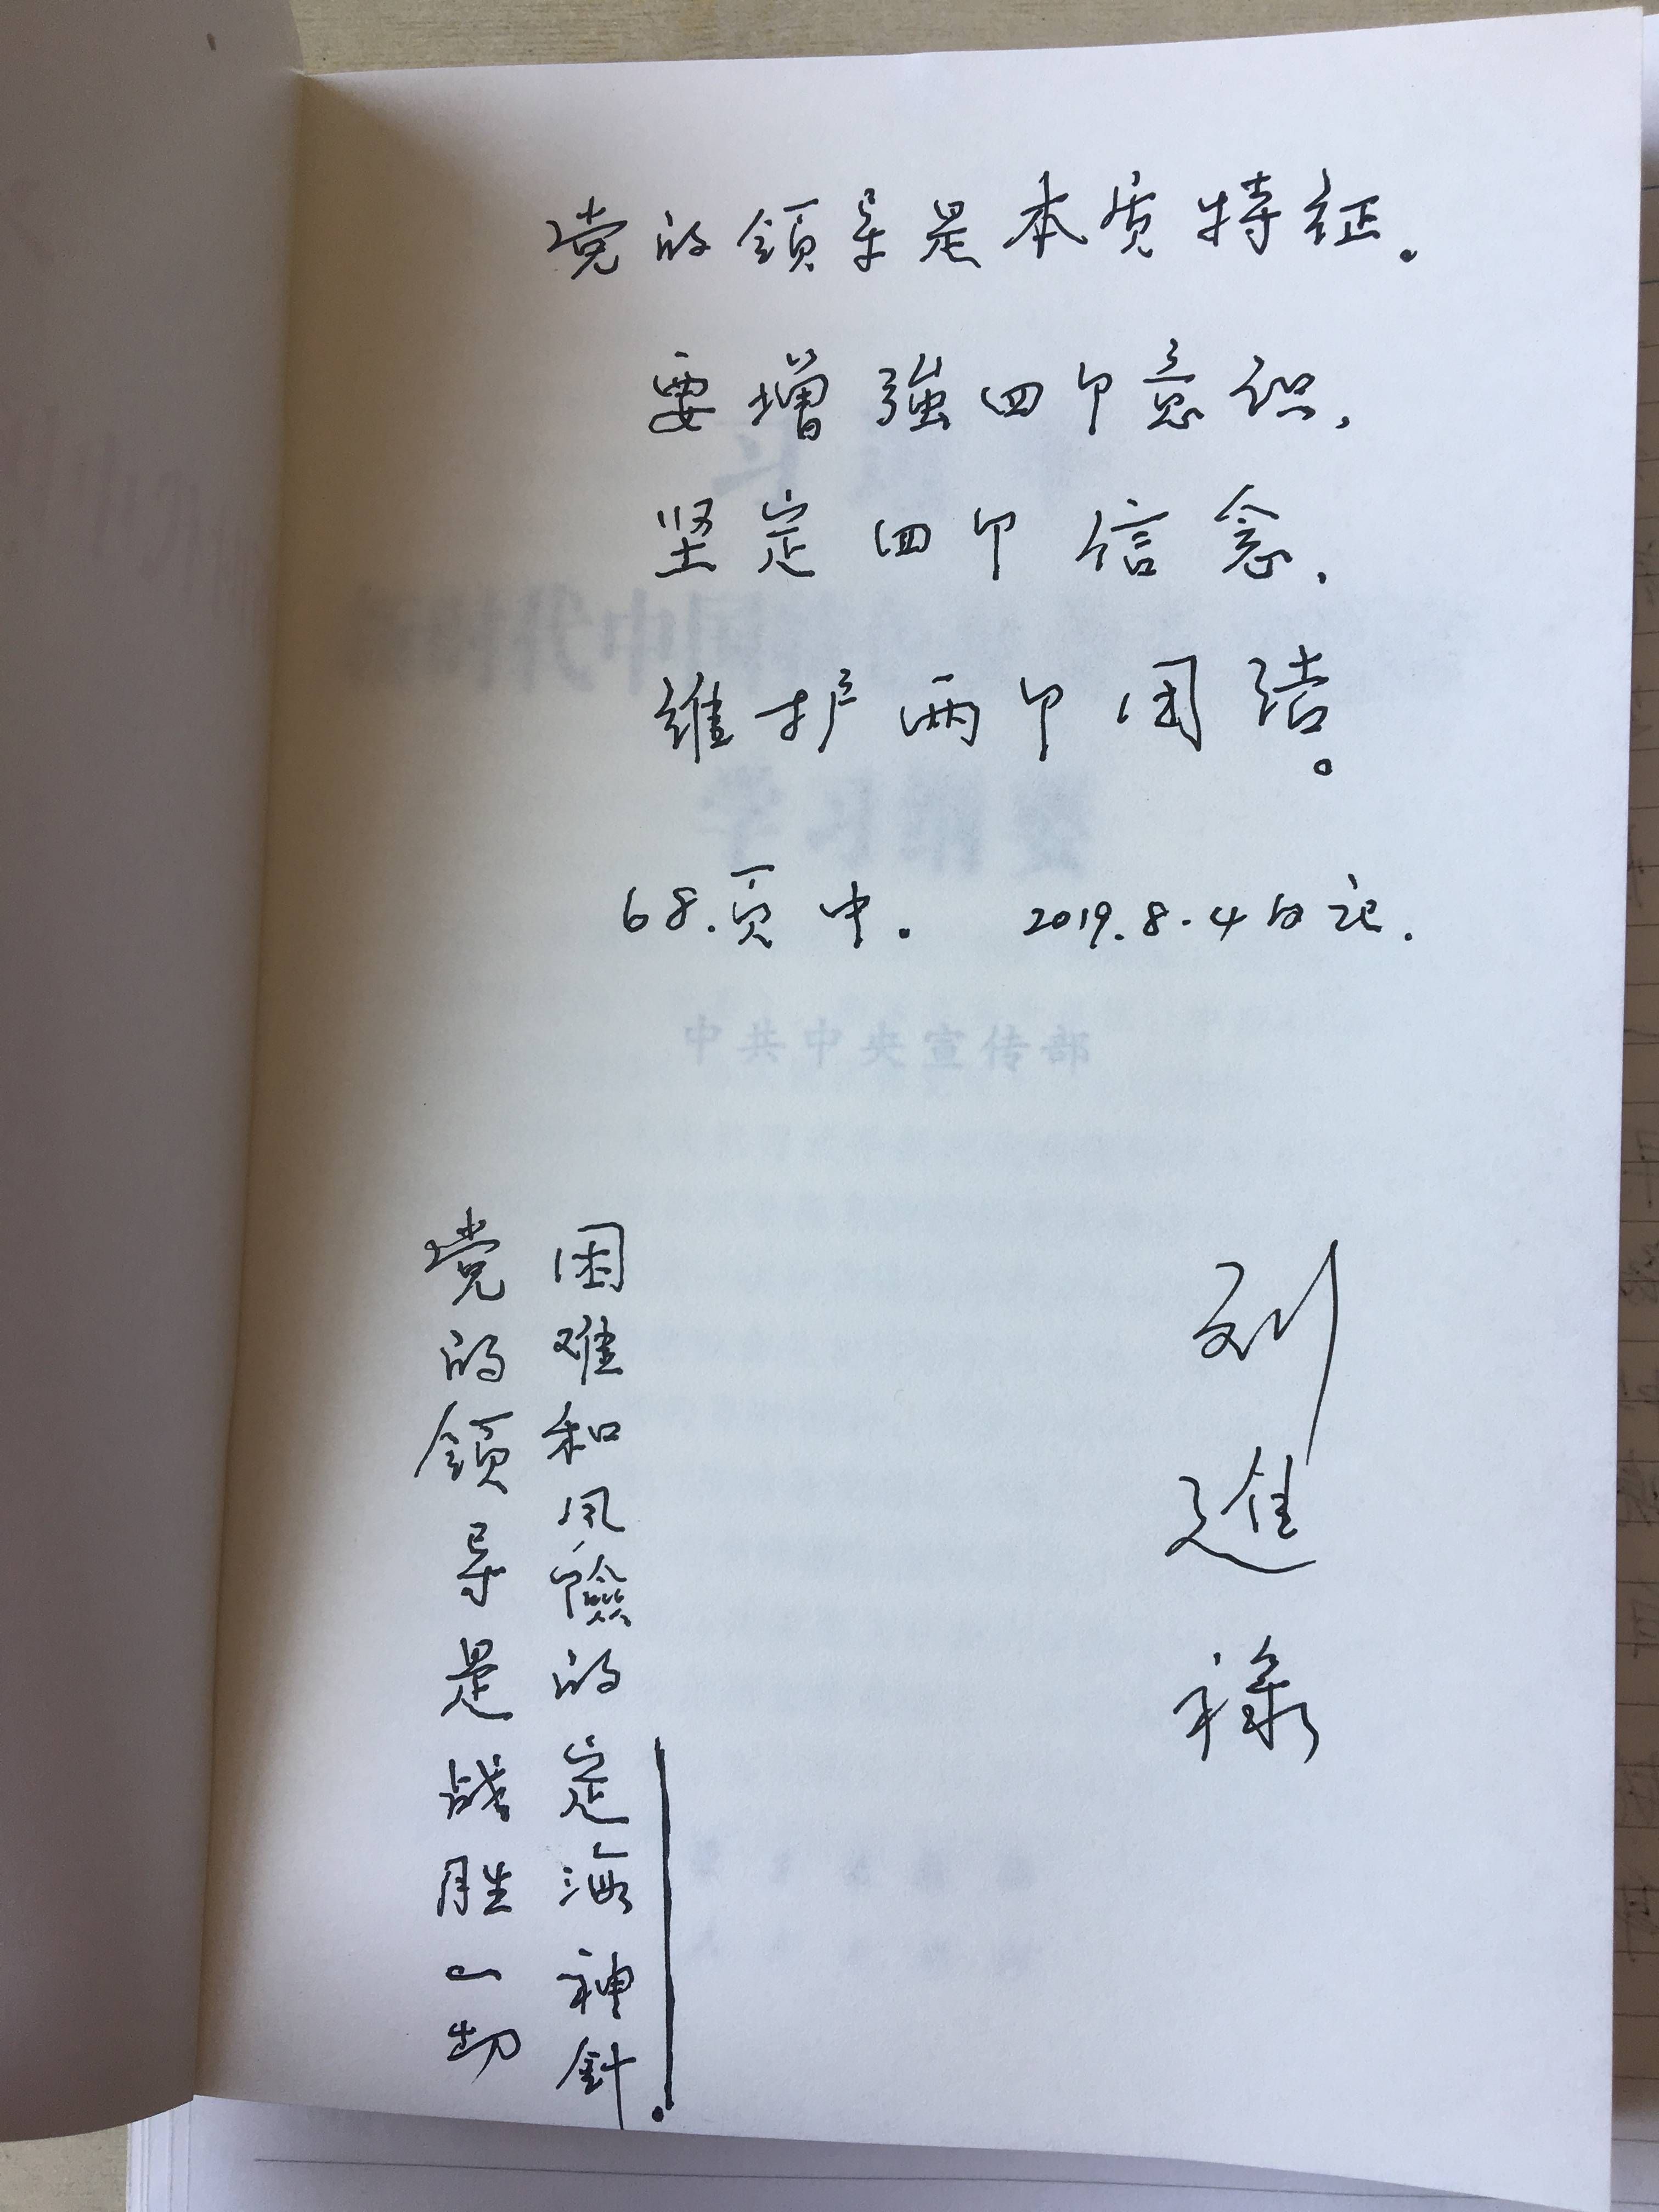 党的領导是本质特征。
要增強四个意识,
坚定四个信念,
維护两个团结。
68.页中。 2019.8.4日记.
中共中央宣传部
党的領导是战胜一切
困难和风險的定海神針。
刘進禄